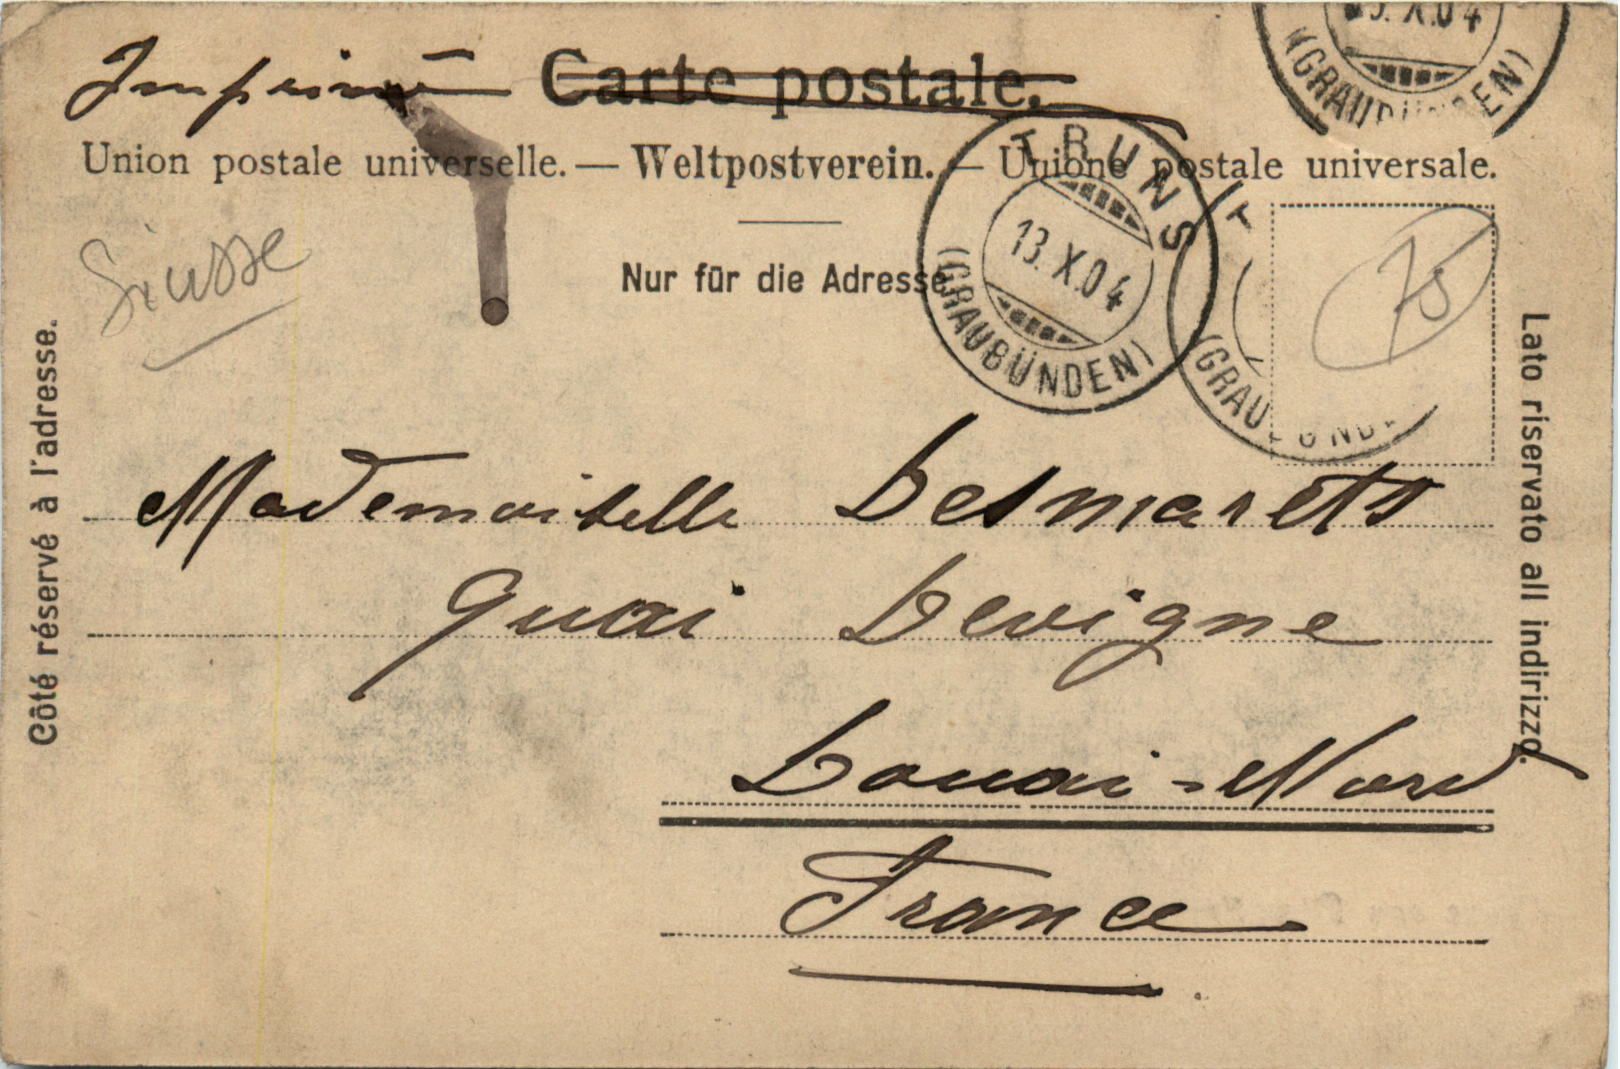 Imprimé Carte postale.
Union postale universelle. — Weltpostverein. — Unione postale universale.
Nur für die Adresse
TRUNS
13. X. 04
(GRAUBÜNDEN)
T
(GRAUBÜNDE
3. X. 04
(GRAUBÜNDEN)
75
Côté réservé à l'adresse.
Lato riservato all indirizzo.
Mademoiselle Desmarets
Quai Devigne
Douai - Nord
France